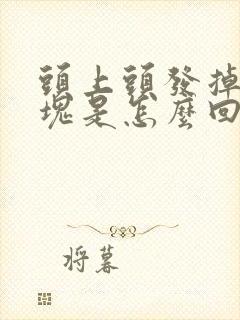 頭上頭發掉
塊是怎麼回
將暮